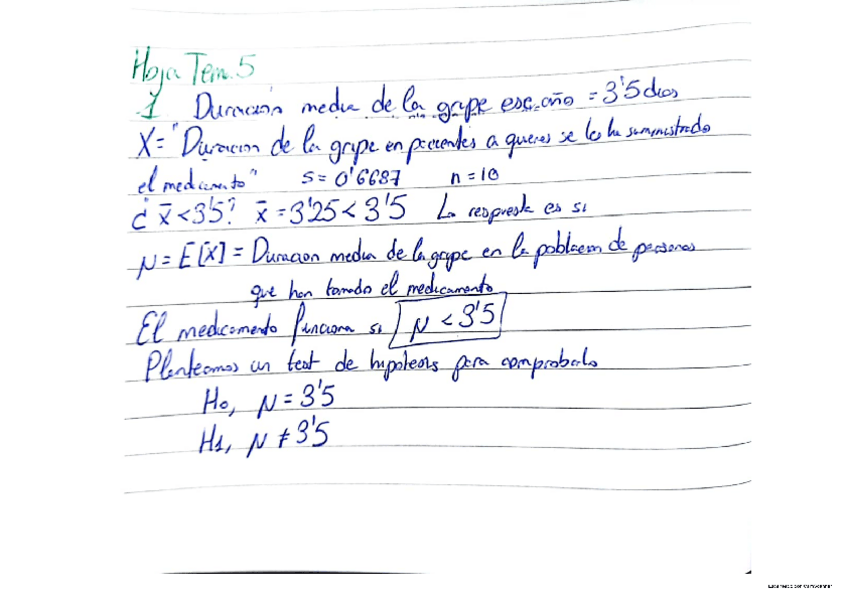 Hoja Tema 5
1 Duración media de la gripe ese año = 3'5 dias
X = "Duracion de la gripe en pacientes a quienes se les ha suministrado
el medicamento" s = 0'6687 n = 10
¿ x̄ < 3'5? x̄ = 3'25 < 3'5 La respuesta es si
μ = E[X] = Duracion media de la gripe en la poblacion de personas
que han tomado el medicamento
El medicamento funciona si μ < 3'5
Planteamos un test de hipotesis para comprobarlo
H0, μ = 3'5
H1, μ ≠ 3'5